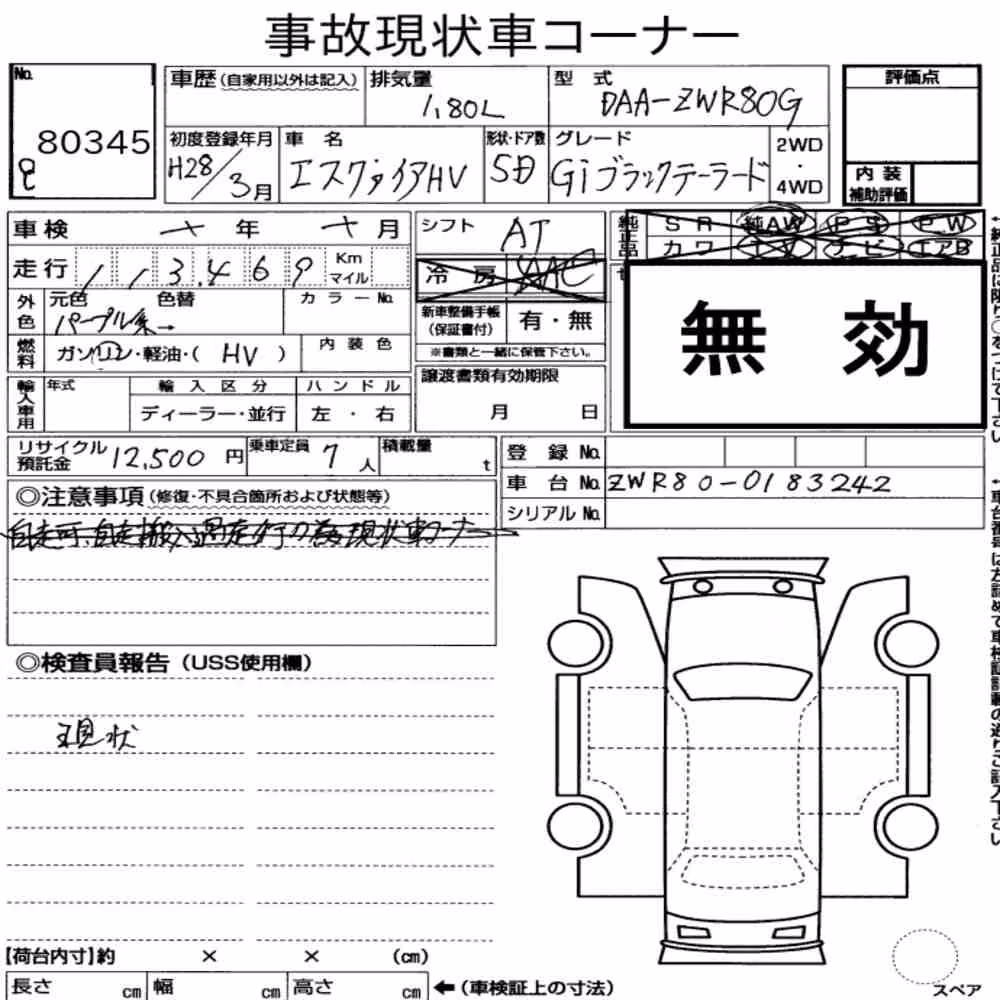 事故現状車コーナー
No.
80345
車歴(自家用以外は記入)
排気量
1.80L
型式
DAA-ZWR80G
評価点
初度登録年月
H28/3月
車名
エスクァイアHV
形状・ドア数
5D
グレード
Giブラックテーラード
2WD
・
4WD
内装
補助評価
車検 年 月
シフト AT
純正品
SR 純AW PS PW
カワ TV ナビ エアB
走行 113,469 Km マイル
冷房 AAC
外色
元色 色替
パープル系→
カラーNo.
新車整備手帳
(保証書付)
有・無
※書類と一緒に保管下さい。
無効
燃料
ガソリン・軽油・( HV )
内装色
輸入車用
年式
輸入区分
ハンドル
ディーラー・並行
左・右
譲渡書類有効期限
月 日
リサイクル
預託金
12,500円
乗車定員
7人
積載量
t
登録No.
車台No. ZWR80-0183242
シリアルNo.
◎注意事項(修復・不具合箇所および状態等)
自走可、自走搬入過走行の為現状車コーナー
◎検査員報告(USS使用欄)
現状
【荷台内寸】約 × × (cm)
長さ cm 幅 cm 高さ cm ←(車検証上の寸法)
スペア
←純正品に限り○をつけて下さい
←車台番号は左詰めで車検証記載の通りご記入下さい